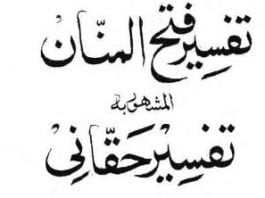 تفسیر فتح المنّان
المشہور بہ
تفسیر حقّانی